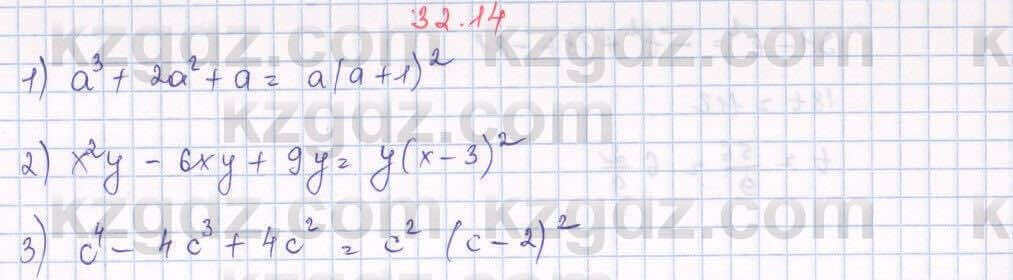 32.14
1) a³ + 2a² + a = a(a+1)²
2) x²y - 6xy + 9y = y(x-3)²
3) c⁴ - 4c³ + 4c² = c² (c-2)²
kzgdz.com kzgdz.com k
kzgdz.com
kzgdz.com kzgdz.com k